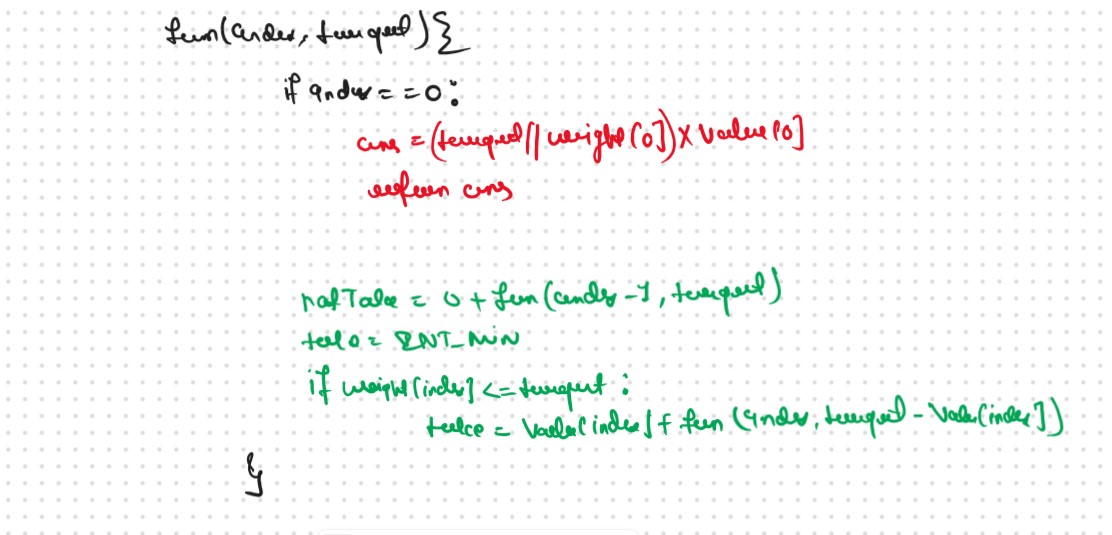 fun(index, target){
if index == 0:
ans = (target // weight[0]) x value[0]
return ans
notTake = 0 + fun(index -1, target)
take = INT_MIN
if weight[index] <= target :
take = value[index] + fun (index, target - value[index])
}